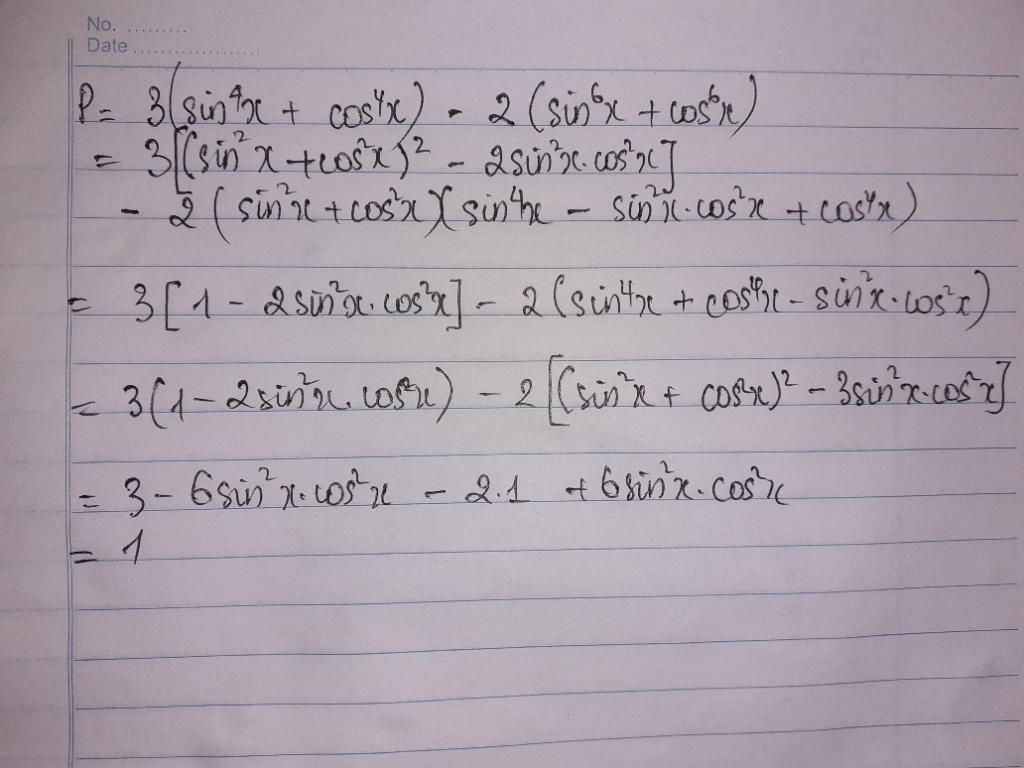 No. .........
Date ...................
P = 3(sin⁴x + cos⁴x) - 2(sin⁶x + cos⁶x)
= 3[(sin²x + cos²x)² - 2sin²x.cos²x]
- 2(sin²x + cos²x)(sin⁴x - sin²x.cos²x + cos⁴x)
= 3[1 - 2sin²x.cos²x] - 2(sin⁴x + cos⁴x - sin²x.cos²x)
= 3(1 - 2sin²x.cos²x) - 2[(sin²x + cos²x)² - 3sin²x.cos²x]
= 3 - 6sin²x.cos²x - 2.1 + 6sin²x.cos²x
= 1